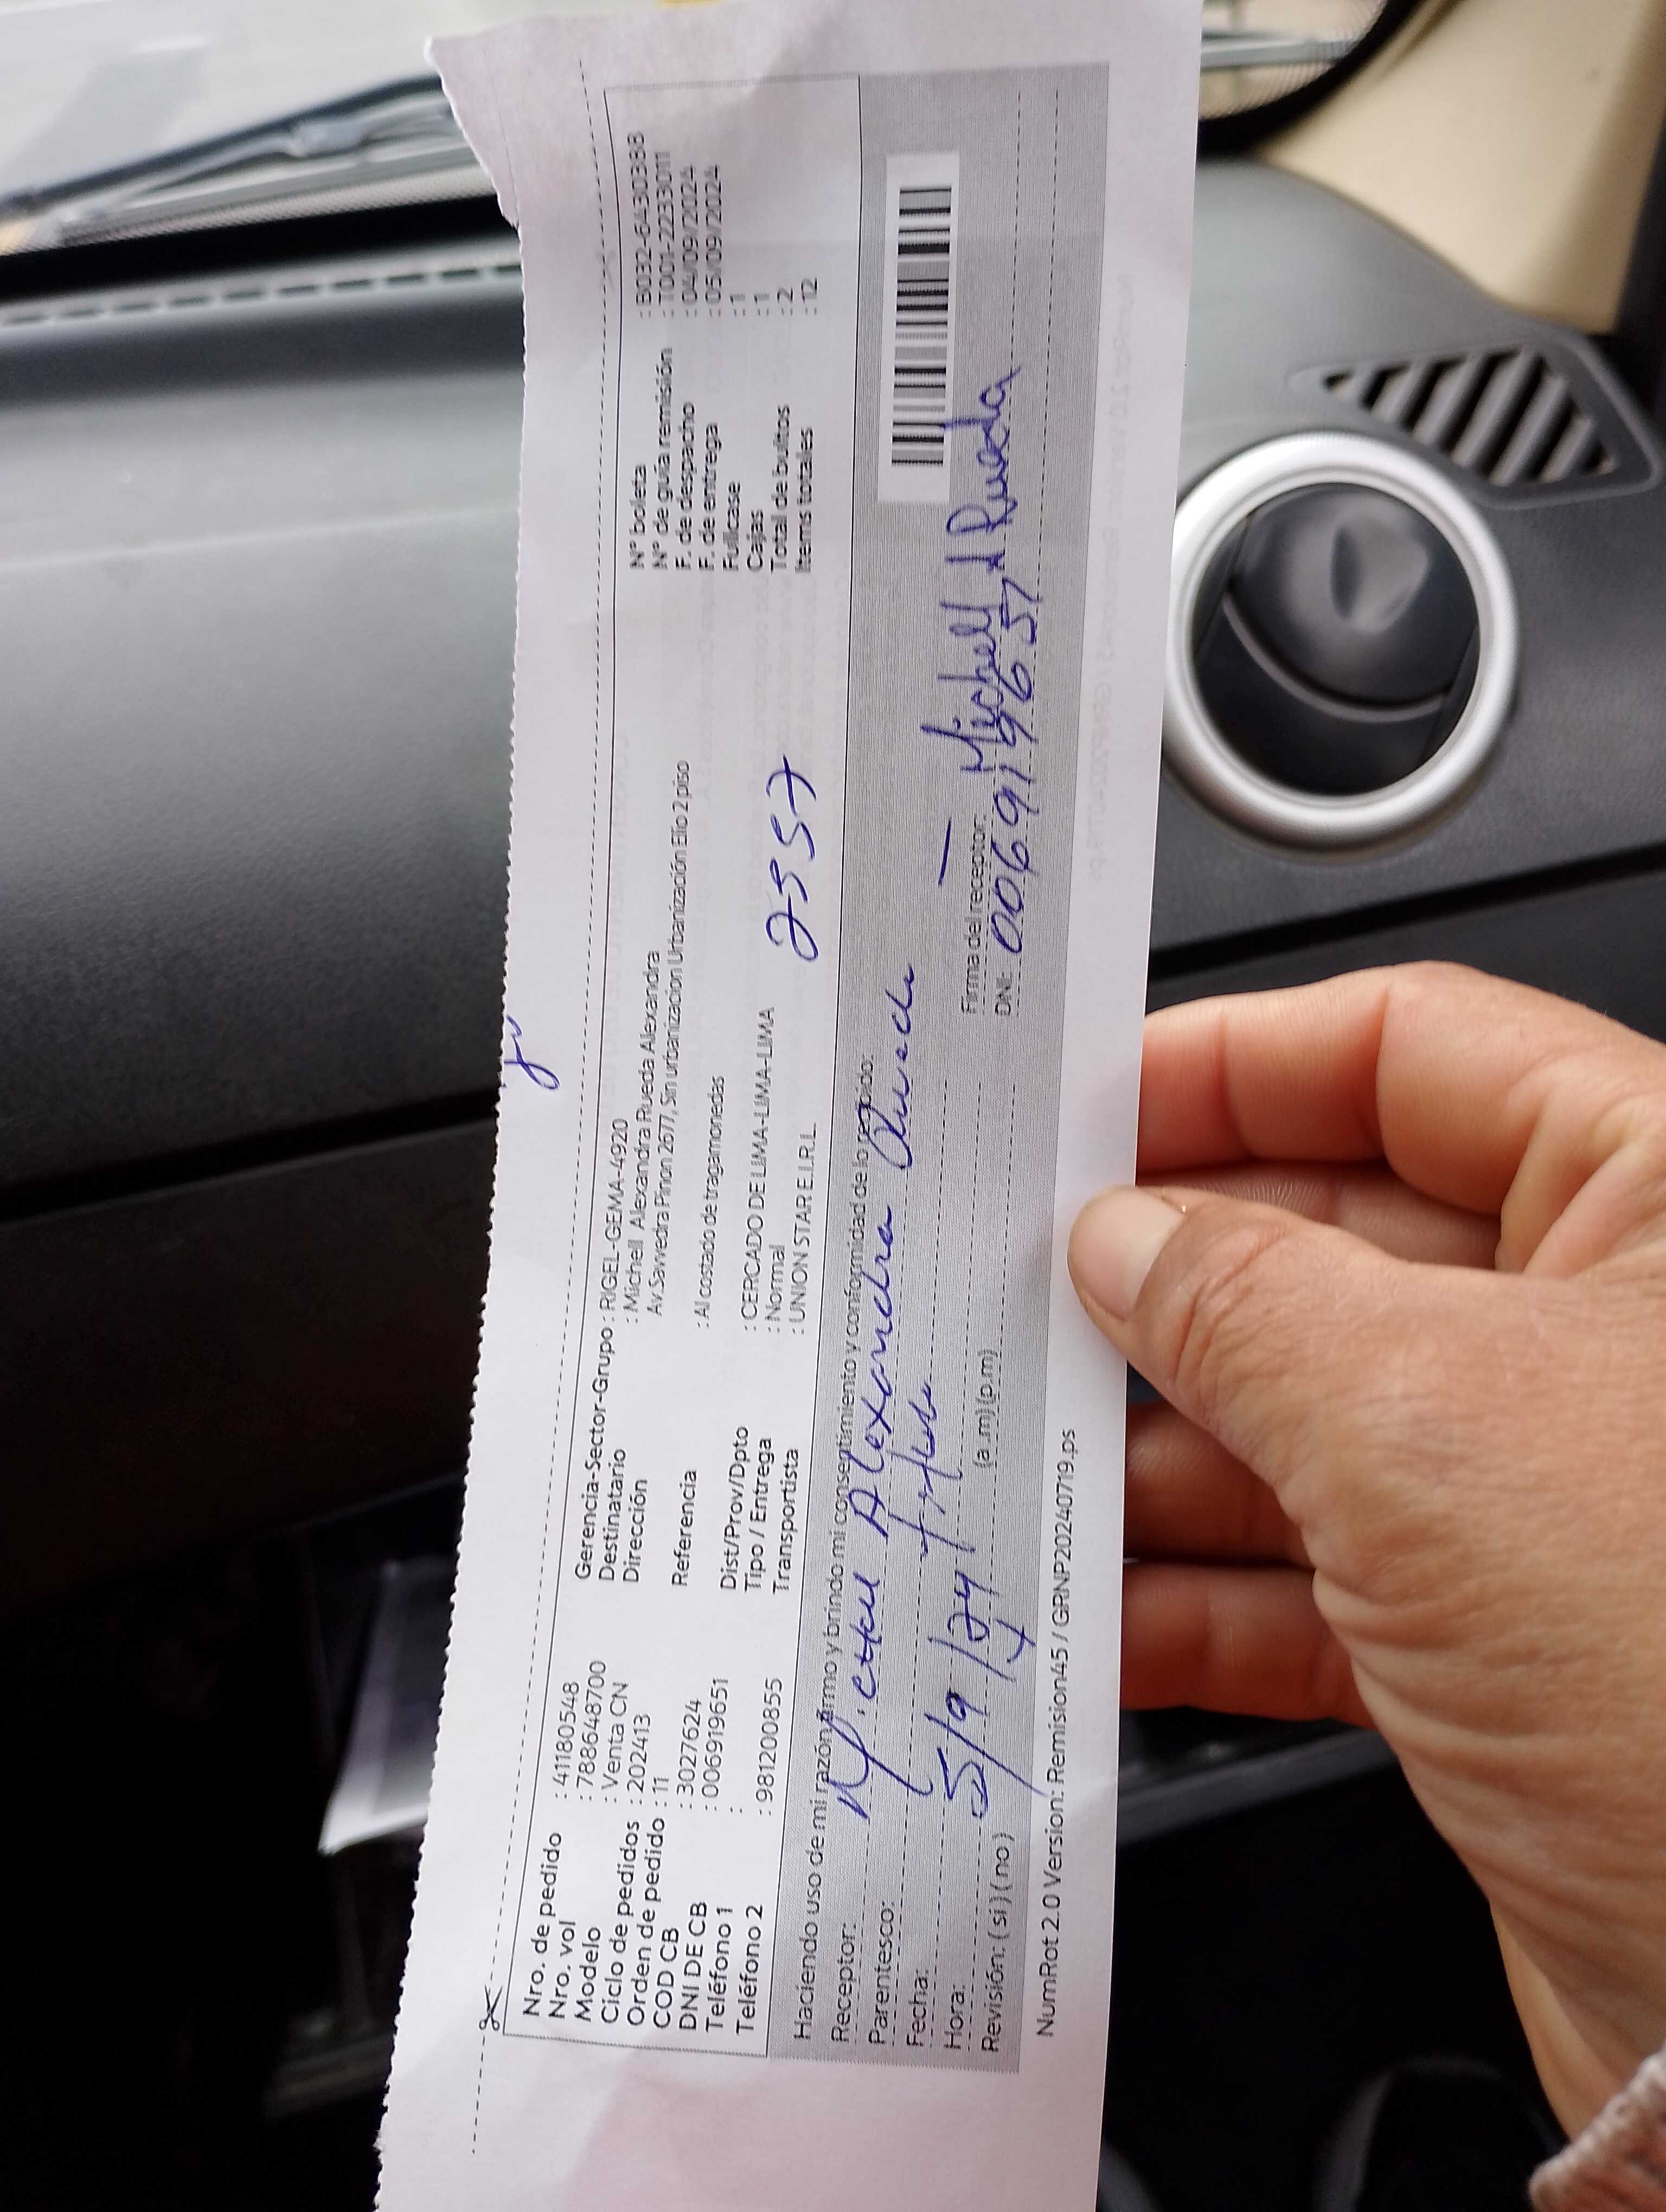 Nro. de pedido : 41180548
Nro. vol : 788648700
Modelo : Venta CN
Ciclo de pedidos : 202413
Orden de pedido : 11
COD CB : 3027624
DNI DE CB : 006919651
Teléfono 1 :
Teléfono 2 : 981200855
Gerencia-Sector-Grupo : RIGEL-GEMA-4920
Destinatario : Michell Alexandra Rueda Alexandra
Dirección Av.Savvedra Pinon 2677, Sin urbanizacion Urbanización Elio 2 piso
Referencia : Al costado de tragamonedas
Dist/Prov/Dpto : CERCADO DE LIMA-LIMA-LIMA
Tipo / Entrega : Normal
Transportista : UNION STAR E.I.R.L
2557
N° boleta : B032-6430388
N° de guía remisión : T001-22333011
F. de despacho : 04/09/2024
F. de entrega : 05/09/2024
Fullcase : 1
Cajas : 1
Total de bultos : 2
Items totales : 12
Haciendo uso de mi razón firmo y brindo mi consentimiento y conformidad de lo recibido:
Receptor: Alexandra Rueda
Parentesco:
Fecha: 5/9/24
Hora: (a.m) (p.m)
Revisión: ( si ) ( no )
Firma del receptor: Michell A Rueda
DNI: 006919651
NumRot 2.0 Version: Remision45 / GRNP20240719.ps